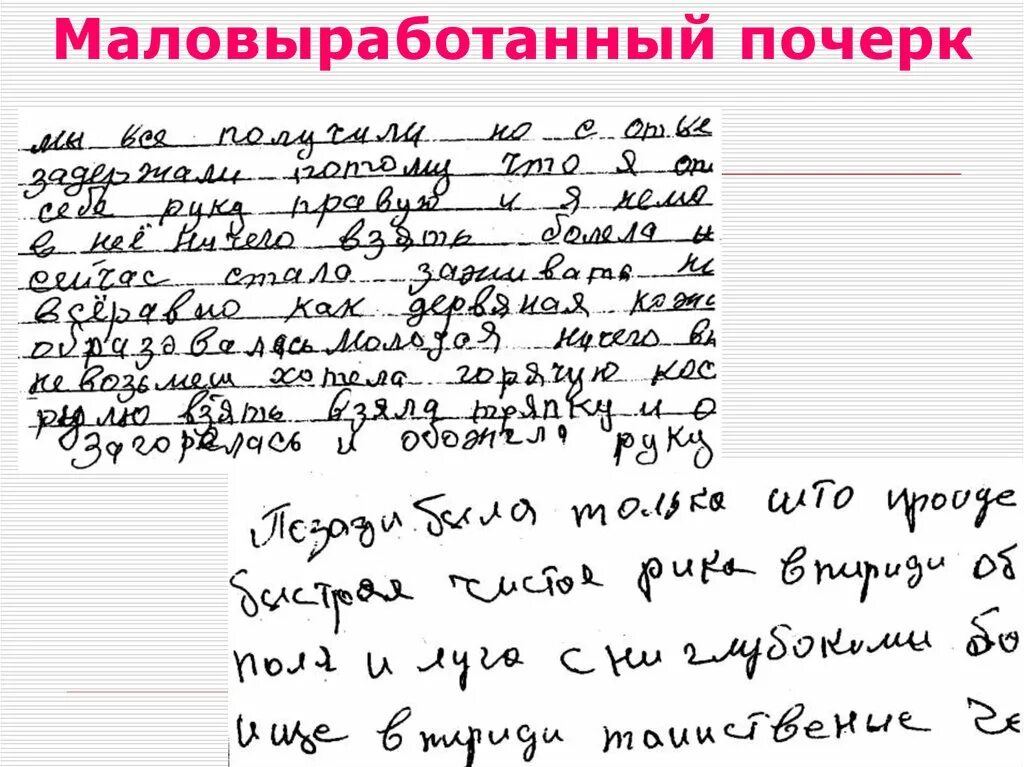 Маловыработанный почерк
мы вся получили но с отве
задержали потому что я оп
себе руку правую и я нема
в неё ничего взять болела и
сейчас стала заживать но
всёравно как дервяная кожа
образавалась молодая ничего в
невозьмеш хотела горячую кас
рулю взять взяла тряпку и о
загорелась и обожгла руку
Пезади была только што пройде
быстрая чистоя рика впириди об
поля и луга с ниглубокими бо
ище впириди таинственые че